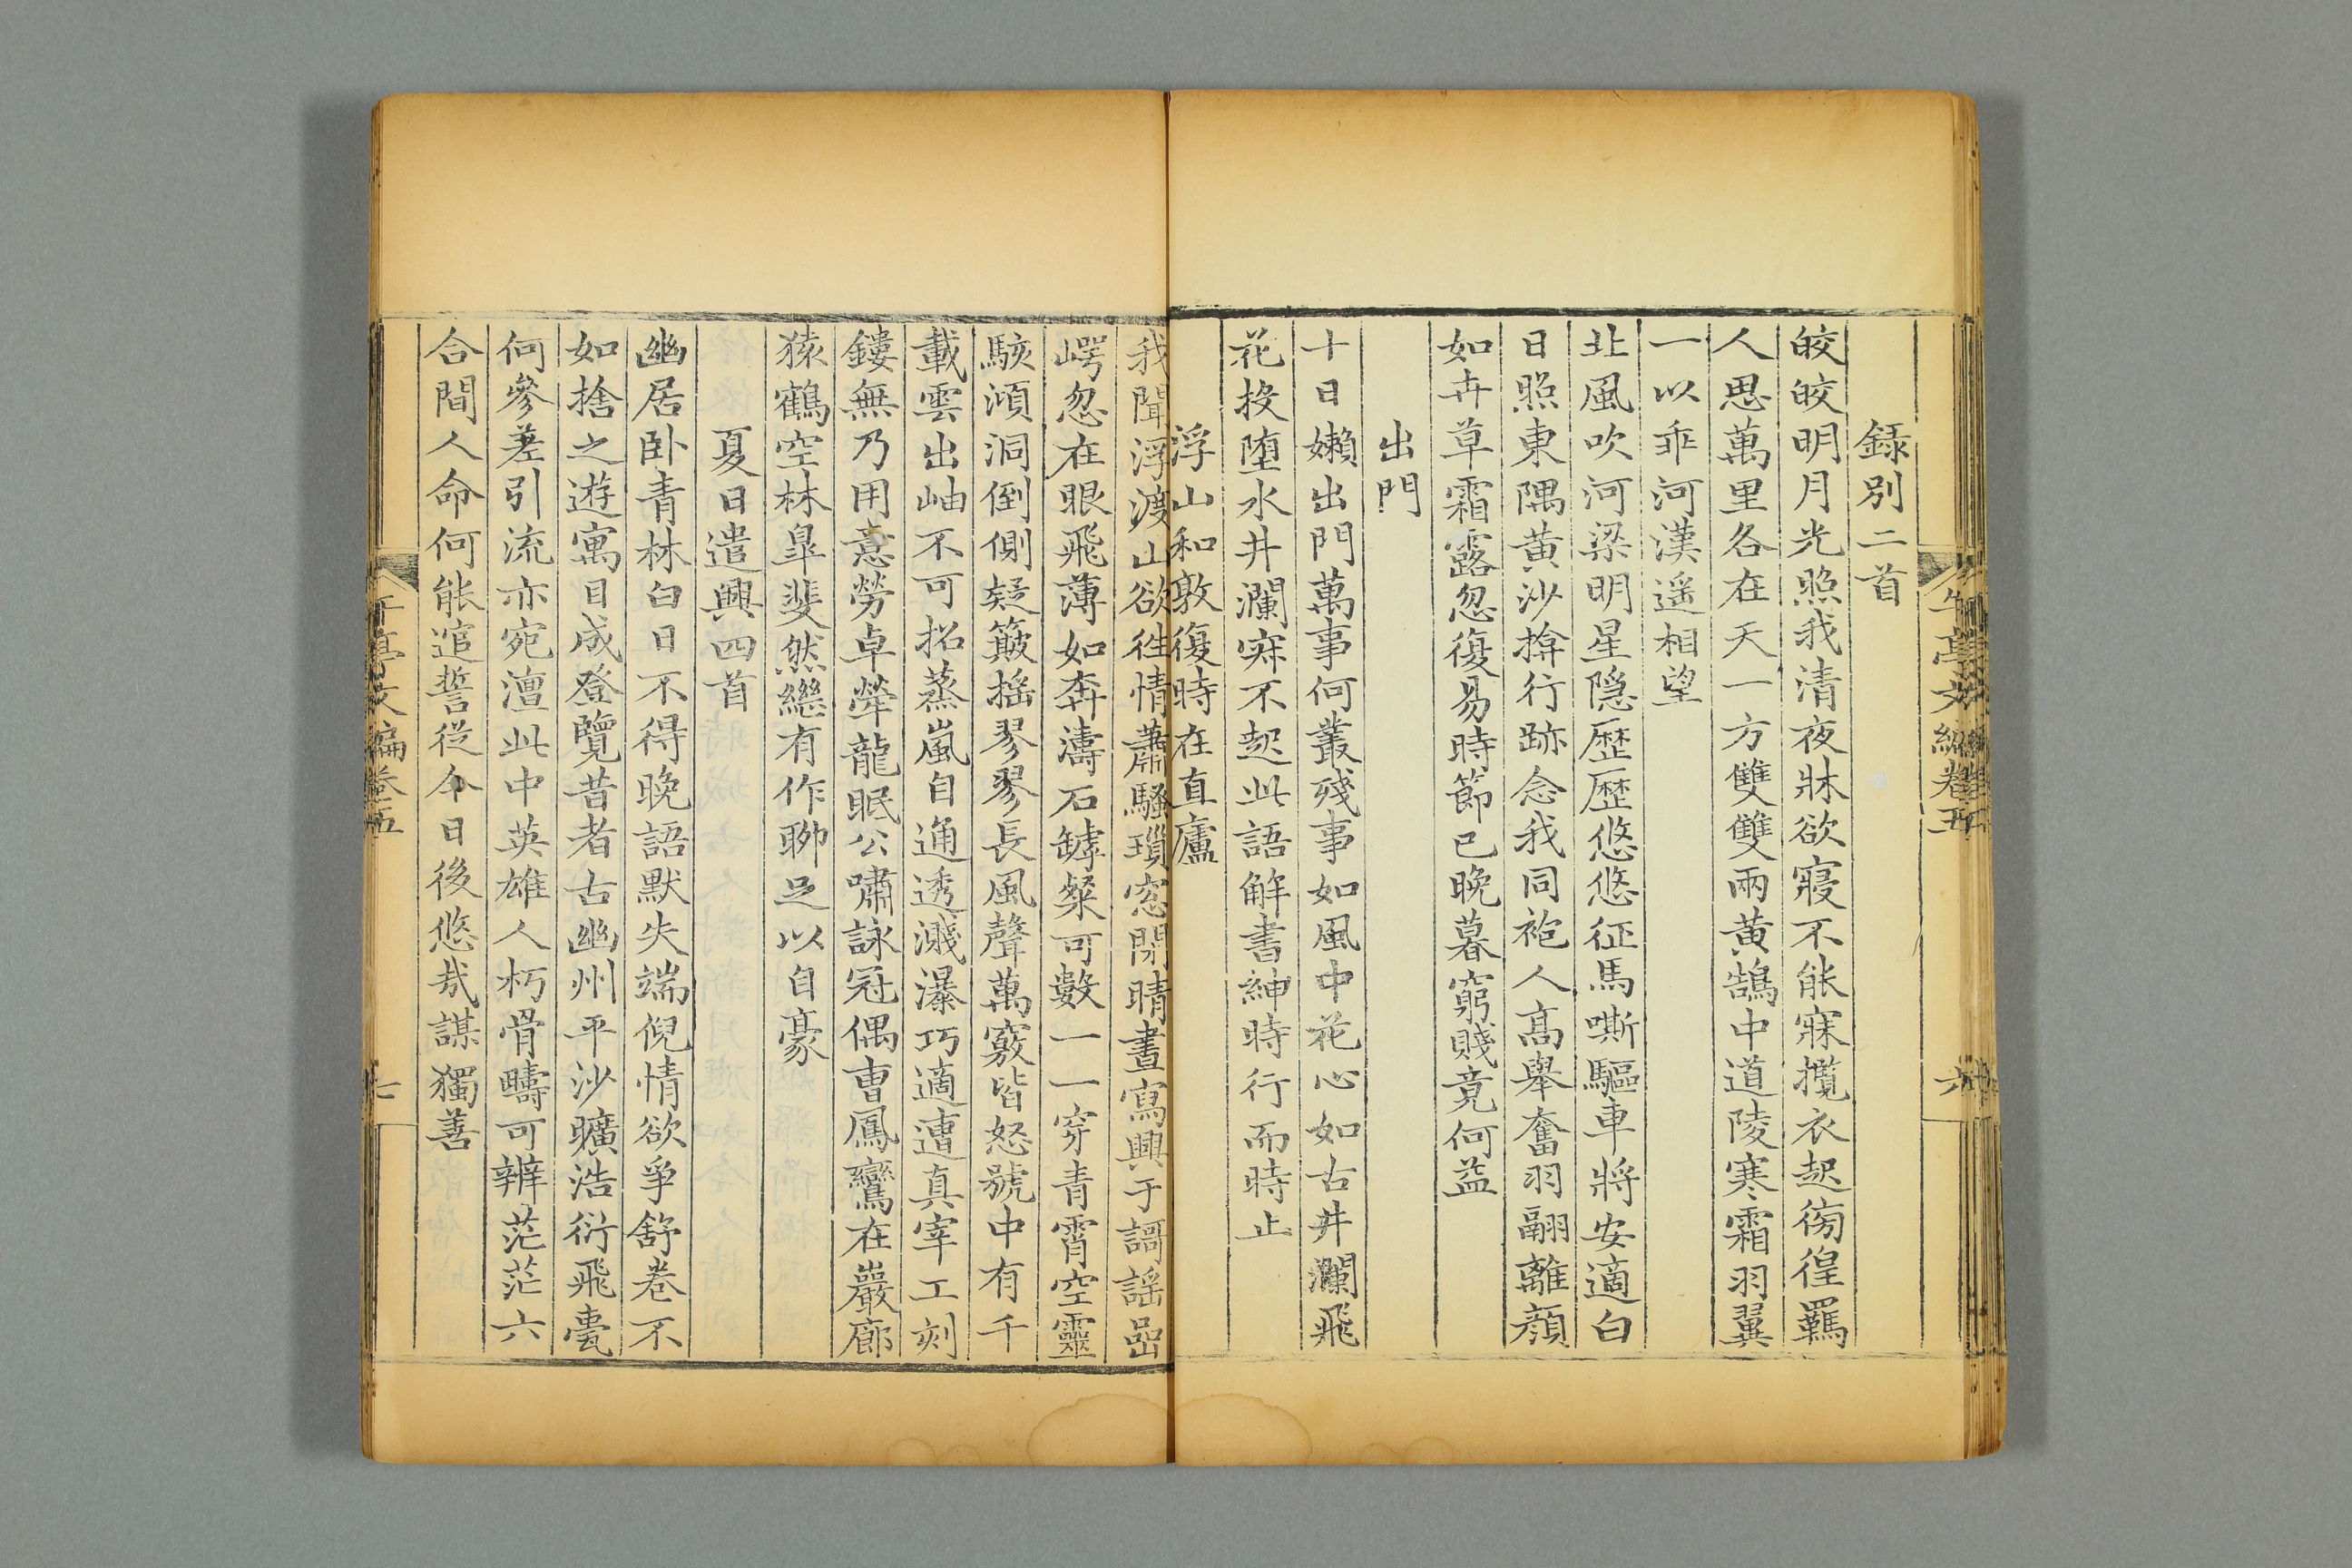 錄別二首
皎皎明月光照我清夜牀欲寢不能寐攬衣起徬徨羈
人思萬里各在天一方雙雙兩黃鵠中道陵寒霜羽翼
一以乖河漢遥相望
北風吹河梁明星隱歷歷悠悠征馬嘶驅車將安適白
日照東隅黃沙揜行跡念我同袍人高舉奮羽翮離顏
如卉草霜露忽復易時節已晚暮窮賤竟何益
出門
十日嬾出門萬事何叢殘事如風中花心如古井瀾飛
花投墮水井瀾寂不起此語觧書紳時行而時止
浮山和敦復時在直廬
我聞浮渡山欲徃情蕭騷瑣窓閒晴晝寫興于謌謡嵒
崿忽在眼飛薄如奔濤石罅粲可數一一穿青霄空靈
駭澒洞倒側疑簸揺翏翏長風聲萬竅皆怒號中有千
載雲出岫不可招蒸嵐自通透濺瀑巧適遭真宰工刻
鏤無乃用意勞卓犖龍眠公嘯詠冠偶曹鳳鸞在巖廊
猿鶴空林皐斐然繼有作聊足以自豪
夏日遣興四首
幽居卧青林白日不得晚語默失端倪情欲爭舒卷不
如捨之遊寓目成登覽昔者古幽州平沙曠浩衍飛甍
何參差引流亦宛澶此中英雄人朽骨疇可辨茫茫六
合間人命何能逭誓從今日後悠哉謀獨善
午亭文編卷五
六
午亭文編卷五
七